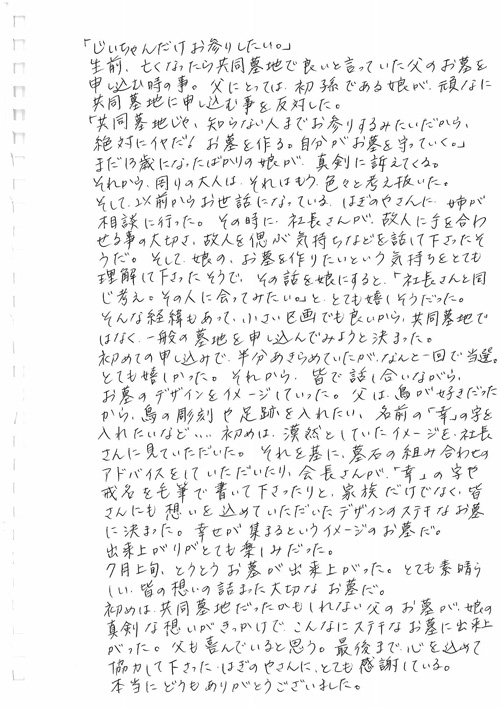 「じいちゃんだけお参りしたい。」
生前、亡くなったら共同墓地で良いと言っていた父のお墓を
申し込む時の事。父にとっては、初孫である娘が、頑なに
共同墓地に申し込む事を反対した。
「共同墓地じゃ、知らない人までお参りするみたいだから、
絶対にイヤだ!お墓を作る。自分がお墓を守っていく。」
まだ13歳になったばかりの娘が、真剣に訴えてくる。
それから、周りの大人は、それはもう、色々と考え抜いた。
そして、以前からお世話になっている、はぎのやさんに、姉が
相談に行った。その時に、社長さんが、故人に手を合わ
せる事の大切さ、故人を偲ぶ気持ちなどを話して下さったそ
うだ。そして、娘の、お墓を作りたいという気持ちをとても
理解して下さったそうで、その話を娘にすると、「社長さんと同
じ考え。その人に会ってみたい。」と、とても嬉しそうだった。
そんな経緯もあって、小さい区画でも良いから、共同墓地で
はなく、一般の墓地を申し込んでみようと決まった。
初めての申し込みで、半分あきらめていたが、なんと一回で当選。
とても嬉しかった。それから、皆で話し合いながら、
お墓のデザインをイメージしていった。父は、鳥が好きだった
から、鳥の彫刻や足跡を入れたい、名前の「幸」の字を
入れたいなど…初めは、漠然としていたイメージを、社長
さんに見ていただいた。それを基に、墓石の組み合わせの
アドバイスをしていただいたり、会長さんが、「幸」の字や
戒名を毛筆で書いて下さったりと、家族だけでなく、皆
さんにも想いを込めていただいたデザインのステキなお墓
に決まった。幸せが集まるというイメージのお墓だ。
出来上がりがとても楽しみだった。
7月上旬、とうとうお墓が出来上がった。とても素晴ら
しい、皆の想いの詰まった大切なお墓だ。
初めは、共同墓地だったかもしれない父のお墓が、娘の
真剣な想いがきっかけで、こんなにステキなお墓に出来上
がった。父も喜んでいると思う。最後まで、心を込めて
協力して下さった、はぎのやさんに、とても感謝している。
本当にどうもありがとうございました。